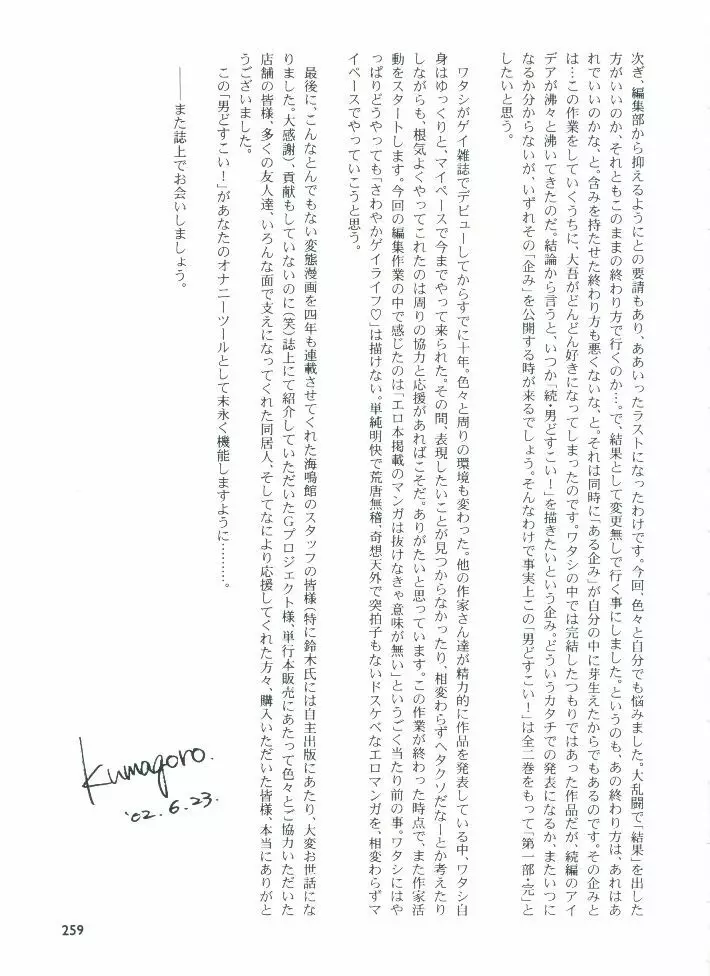 次ぎ、編集部から抑えるようにとの要請もあり、ああいったラストになったわけです。今回、色々と自分でも悩みました。大乱闘で「結果」を出した
方がいいのか、それともこのままの終わり方で行くのか…。で、結果として変更無しで行く事にしました。というのも、あの終わり方は、あれはあ
れでいいのかな、と。含みを持たせた終わり方も悪くないな、と。それは同時に「ある企み」が自分の中に芽生えたからでもあるのです。その企みと
は…この作業をしていくうちに、大吾がどんどん好きになってしまったのです。ワタシの中では完結したつもりではあった作品だが、続編のアイ
デアが沸々と沸いてきたのだ。結論から言うと、いつか「続・男どすこい！」を描きたいという企み。どういうカタチでの発表になるか、またいつに
なるか分からないが、いずれその「企み」を公開する時が来るでしょう。そんなわけで事実上この「男どすこい！」は全二巻をもって「第一部・完」と
したいと思う。
ワタシがゲイ雑誌でデビューしてからすでに十年。色々と周りの環境も変わった。他の作家さん達が精力的に作品を発表している中、ワタシ自
身はゆっくりと、マイペースで今までやって来られた。その間、表現したいことが見つからなかったり、相変わらずヘタクソだなーとか考えたり
しながらも、根気よくやってこれたのは周りの協力と応援があればこそだ。ありがたいと思っています。この作業が終わった時点で、また作家活
動をスタートします。今回の編集作業の中で感じたのは「エロ本掲載のマンガは抜けなきゃ意味が無い」というごく当たり前の事。ワタシにはや
っぱりどうやっても「さわやかゲイライフ♡」は描けない。単純明快で荒唐無稽、奇想天外で突拍子もないドスケベなエロマンガを、相変わらずマ
イペースでやっていこうと思う。
最後に、こんなとんでもない変態漫画を四年も連載させてくれた海鳴館のスタッフの皆様（特に鈴木氏には自主出版にあたり、大変お世話にな
りました。大感謝）、貢献もしていないのに（笑）誌上にて紹介していただいたＧプロジェクト様、単行本販売にあたって色々とご協力いただいた
店舗の皆様、多くの友人達、いろんな面で支えになってくれた同居人、そしてなにより応援してくれた方々、購入いただいた皆様、本当にありがと
うございました。
この「男どすこい！」があなたのオナニーツールとして末永く機能しますように………。
――また誌上でお会いしましょう。
Kumagoro.
'02.6.23.
259